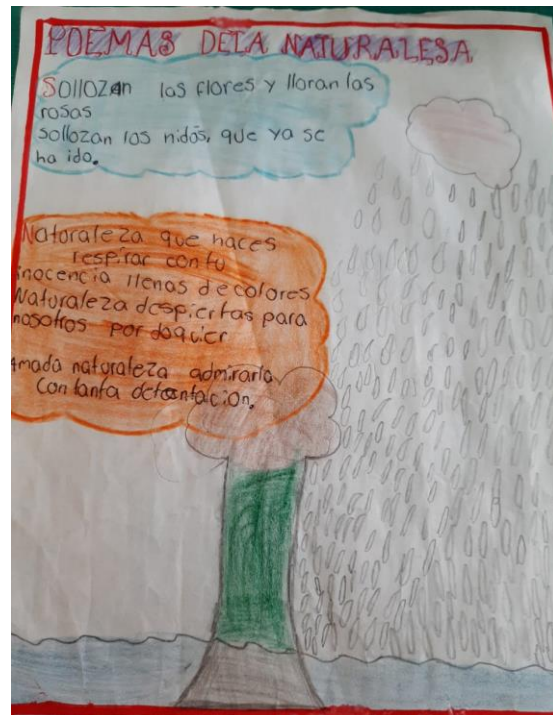 POEMAS DE LA NATURALESA
Sollozan las flores y lloran las
rosas
sollozan los nidos, que ya se
ha ido.
Naturaleza que haces
respirar con tu
inocencia llenas de colores
Naturaleza despiertas para
nosotros por doquier
Amada naturaleza admirarla
con tanta